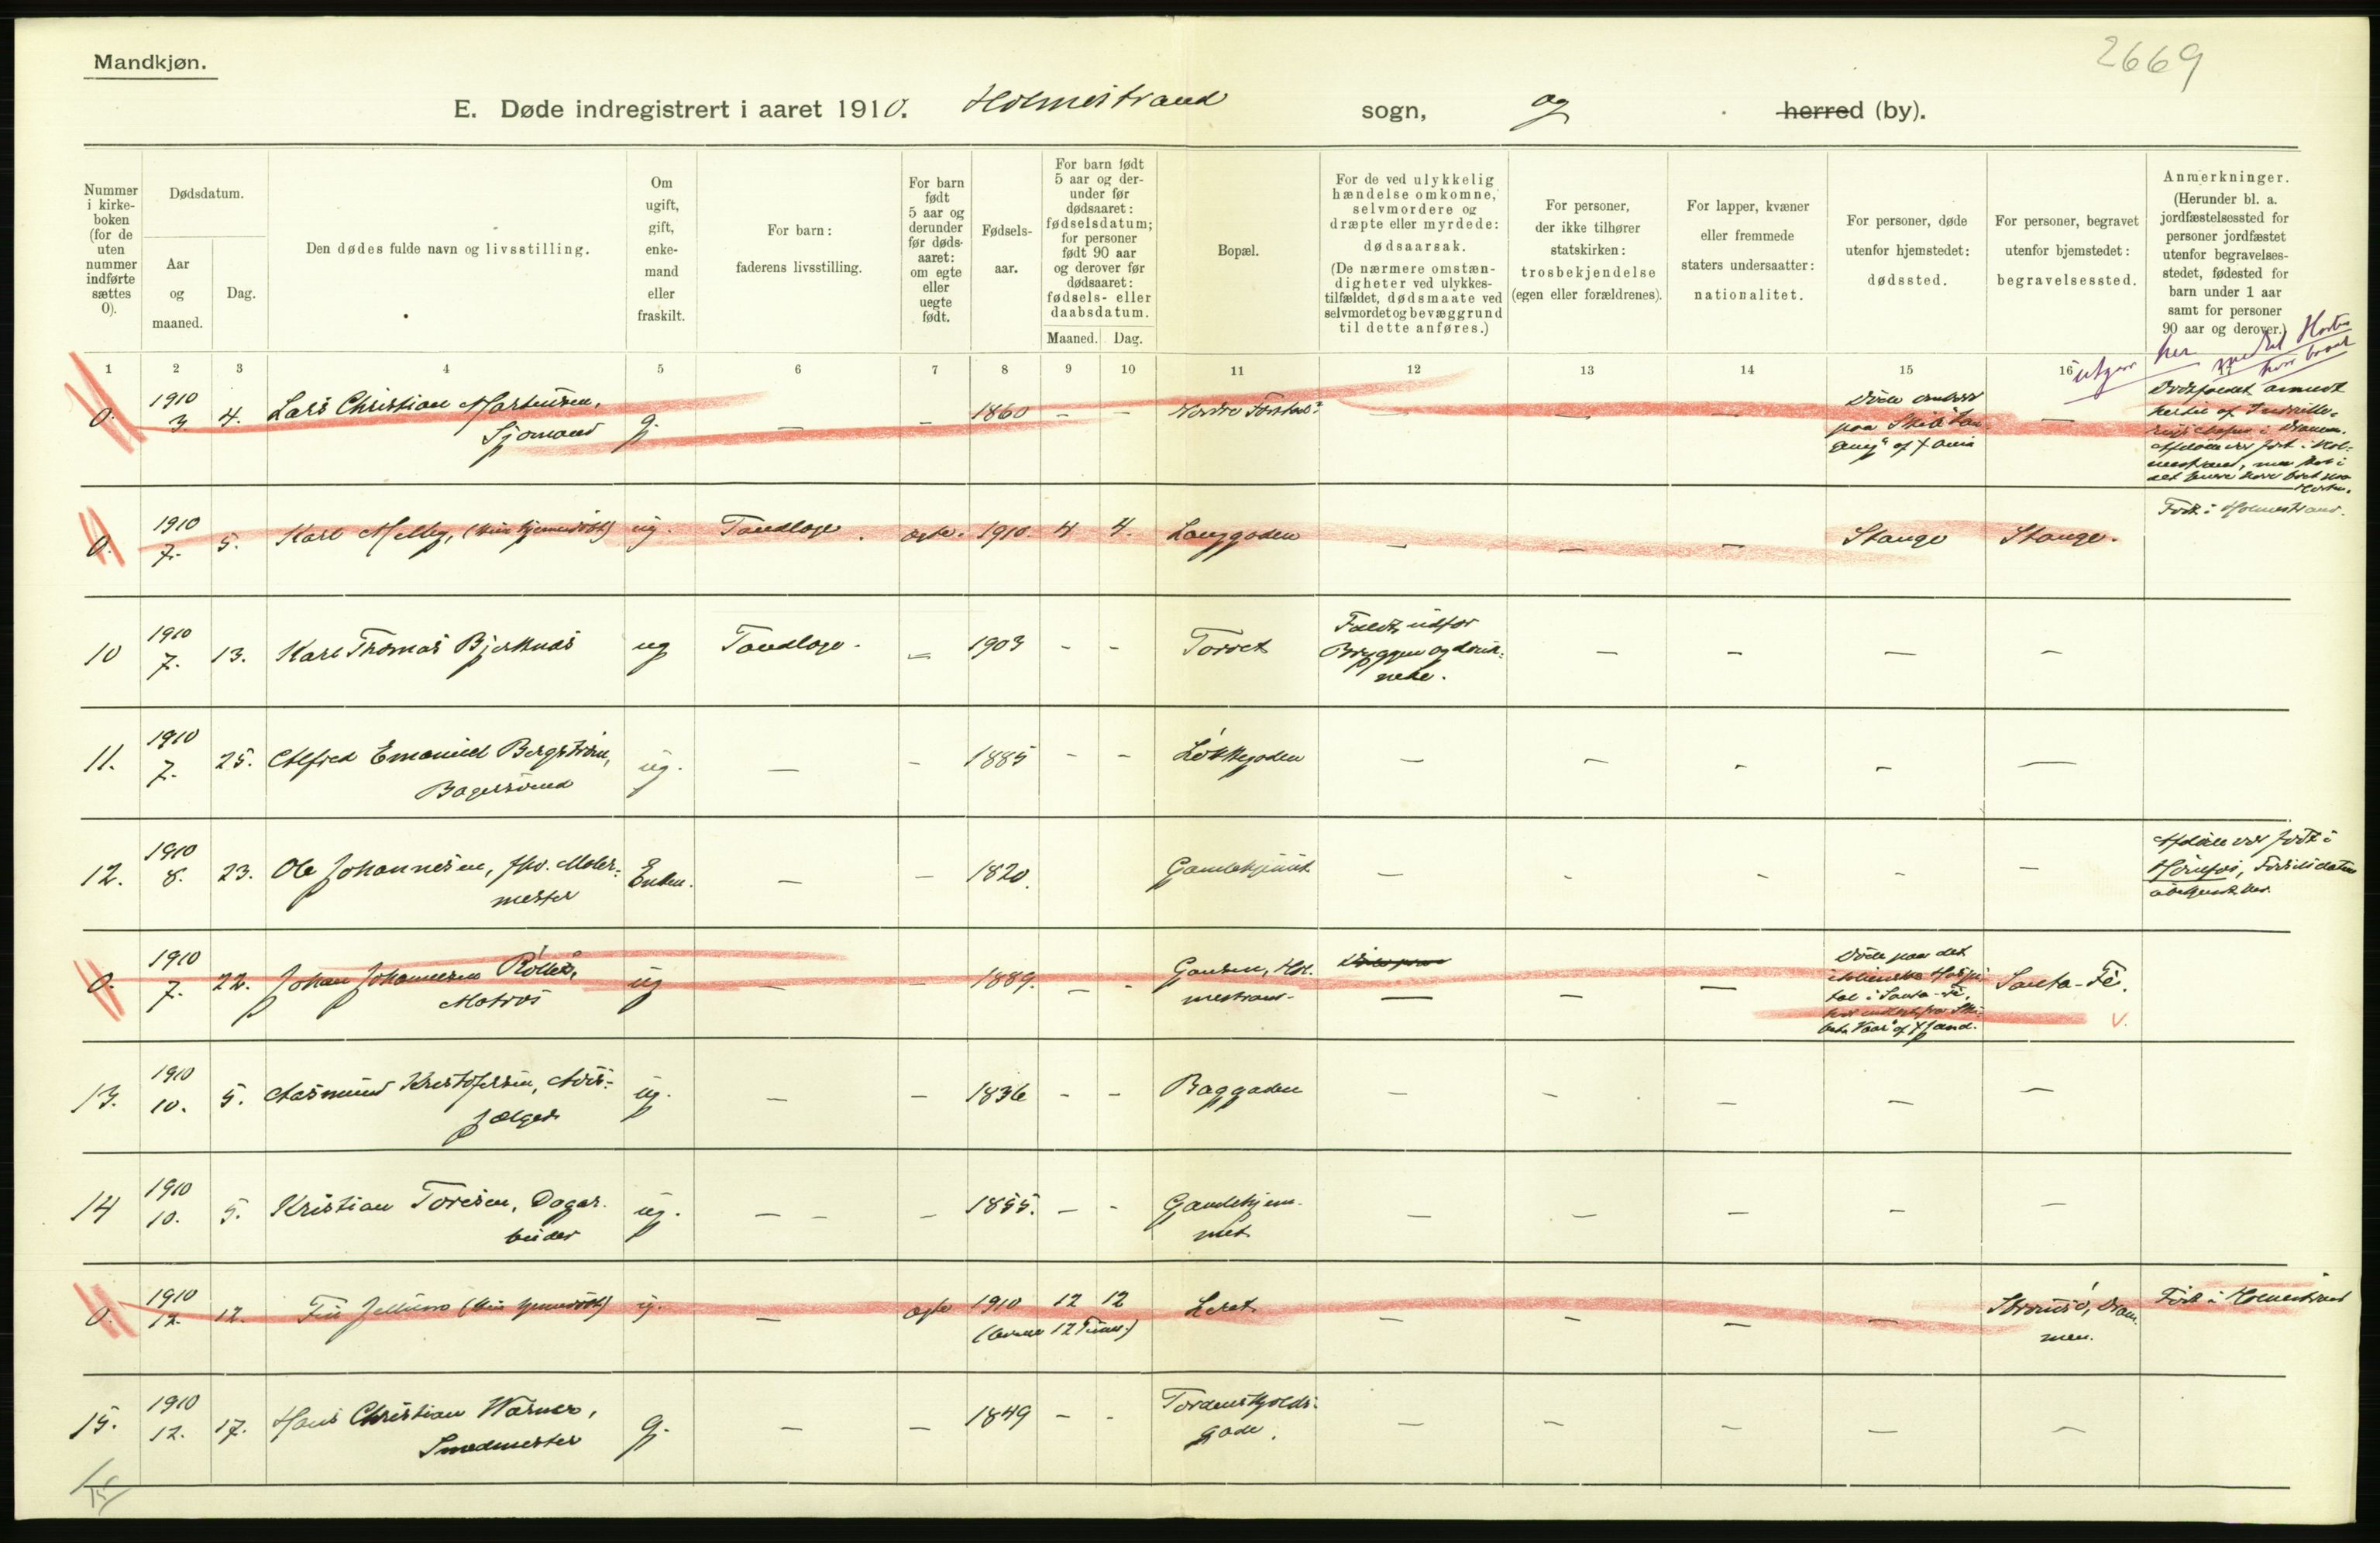 Mandkjøn.
2669
E. Døde indregistrert i aaret 1910. Holmestrand sogn, og herred (by).
Nummer i kirkeboken (for de uten nummer indførte sættes 0).
Dødsdatum.
Aar og maaned.
Dag.
Den dødes fulde navn og livsstilling.
Om ugift, gift, enkemand eller fraskilt.
For barn: faderens livsstilling.
For barn født 5 aar og derunder før dødsaaret: om egte eller uegte født.
Fødselsaar.
For barn født 5 aar og derunder før dødsaaret: fødselsdatum; for personer født 90 aar og derover før dødsaaret: fødsels- eller daabsdatum.
Maaned. Dag.
Bopæl.
For de ved ulykkelig hændelse omkomne, selvmordere og dræpte eller myrdede: dødsaarsak. (De nærmere omstændigheter ved ulykkestilfældet, dødsmaate ved selvmordet og bevæggrund til dette anføres.)
For personer, der ikke tilhører statskirken: trosbekjendelse (egen eller forældrenes).
For lapper, kvæner eller fremmede staters undersaatter: nationalitet.
For personer, døde utenfor hjemstedet: dødssted.
For personer, begravet utenfor hjemstedet: begravelsessted.
Anmerkninger. (Herunder bl. a. jordfæstelsessted for personer jordfæstet utenfor begravelsesstedet, fødested for barn under 1 aar samt for personer 90 aar og derover.)
1 2 3 4 5 6 7 8 9 10 11 12 13 14 15 16
utgaar her
0. 1910 3. 4. Lars Christian Martinsen, Sjømand g. — — 1860 — — Nordre — — — —
0. 1910 7. 5. Karl Melby, (kun hjemmedøbt) ug. Tandlæge. ægte. 1910. 4 4. Langgaden — — — Stange Stange. Født i Holmestrand.
10 1910 7. 13. Karl Thomas Bjerknæs ug Tandlæge. — 1903 — — Torvet Faldt udfor Bryggen og druknede. — — — —
11. 1910 7. 25. Alfred Emanuel Bergstrøm, Bagersvend ug. — — 1885 — — Løkkegaden — — — — —
12. 1910 8. 23. Ole Johannesen, fhv. Malermester Enkem. — — 1820. Gamlehjemmet — — — — —
0. 1910 7. 22. Johan Johannesen Matros ug — — 1889. — — Holmestrand — — — Døde paa det italienske Hospital i Santa-Fè, Santa-Fè.
13. 1910 10. 5. Aasmund Kristofersen, Avissælger ug. — — 1836 — — Baggaden — — — — —
14 1910 10. 5. Kristian Toresen, Dagarbeider ug. — — — 1855. — — Gamlehjemmet — — — — —
0. 1910 12. 12. Jellum (kun hjemmedøbt) ug. — ægte 1910 12 12 — — — — Strømsø, Drammen. Født i Holmestrand
15. 1910 12. 17. Hans Christian Warner, Smedmester g. — — 1849 — — Tordenskjolds gade. — — — — —
15